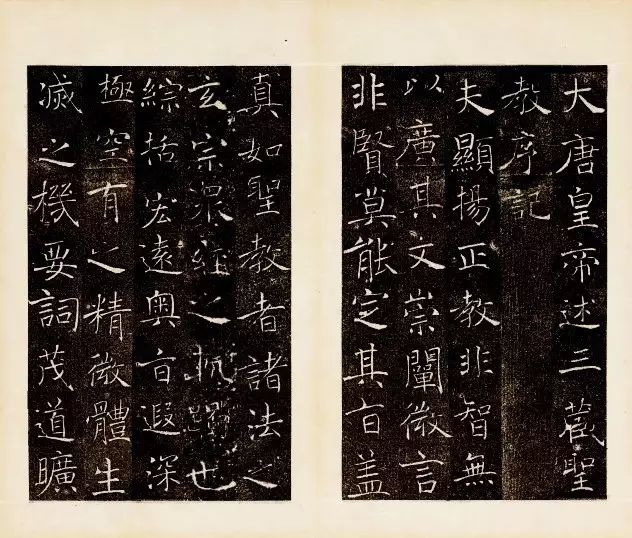 大唐皇帝述三藏聖
教序記
夫顯揚正教非智無
以廣其文崇闡微言
非賢莫能定其旨盖
真如聖教者諸法之
玄宗眾經之軌躅也
綜括宏遠奧旨遐深
極空有之精微體生
滅之機要詞茂道曠